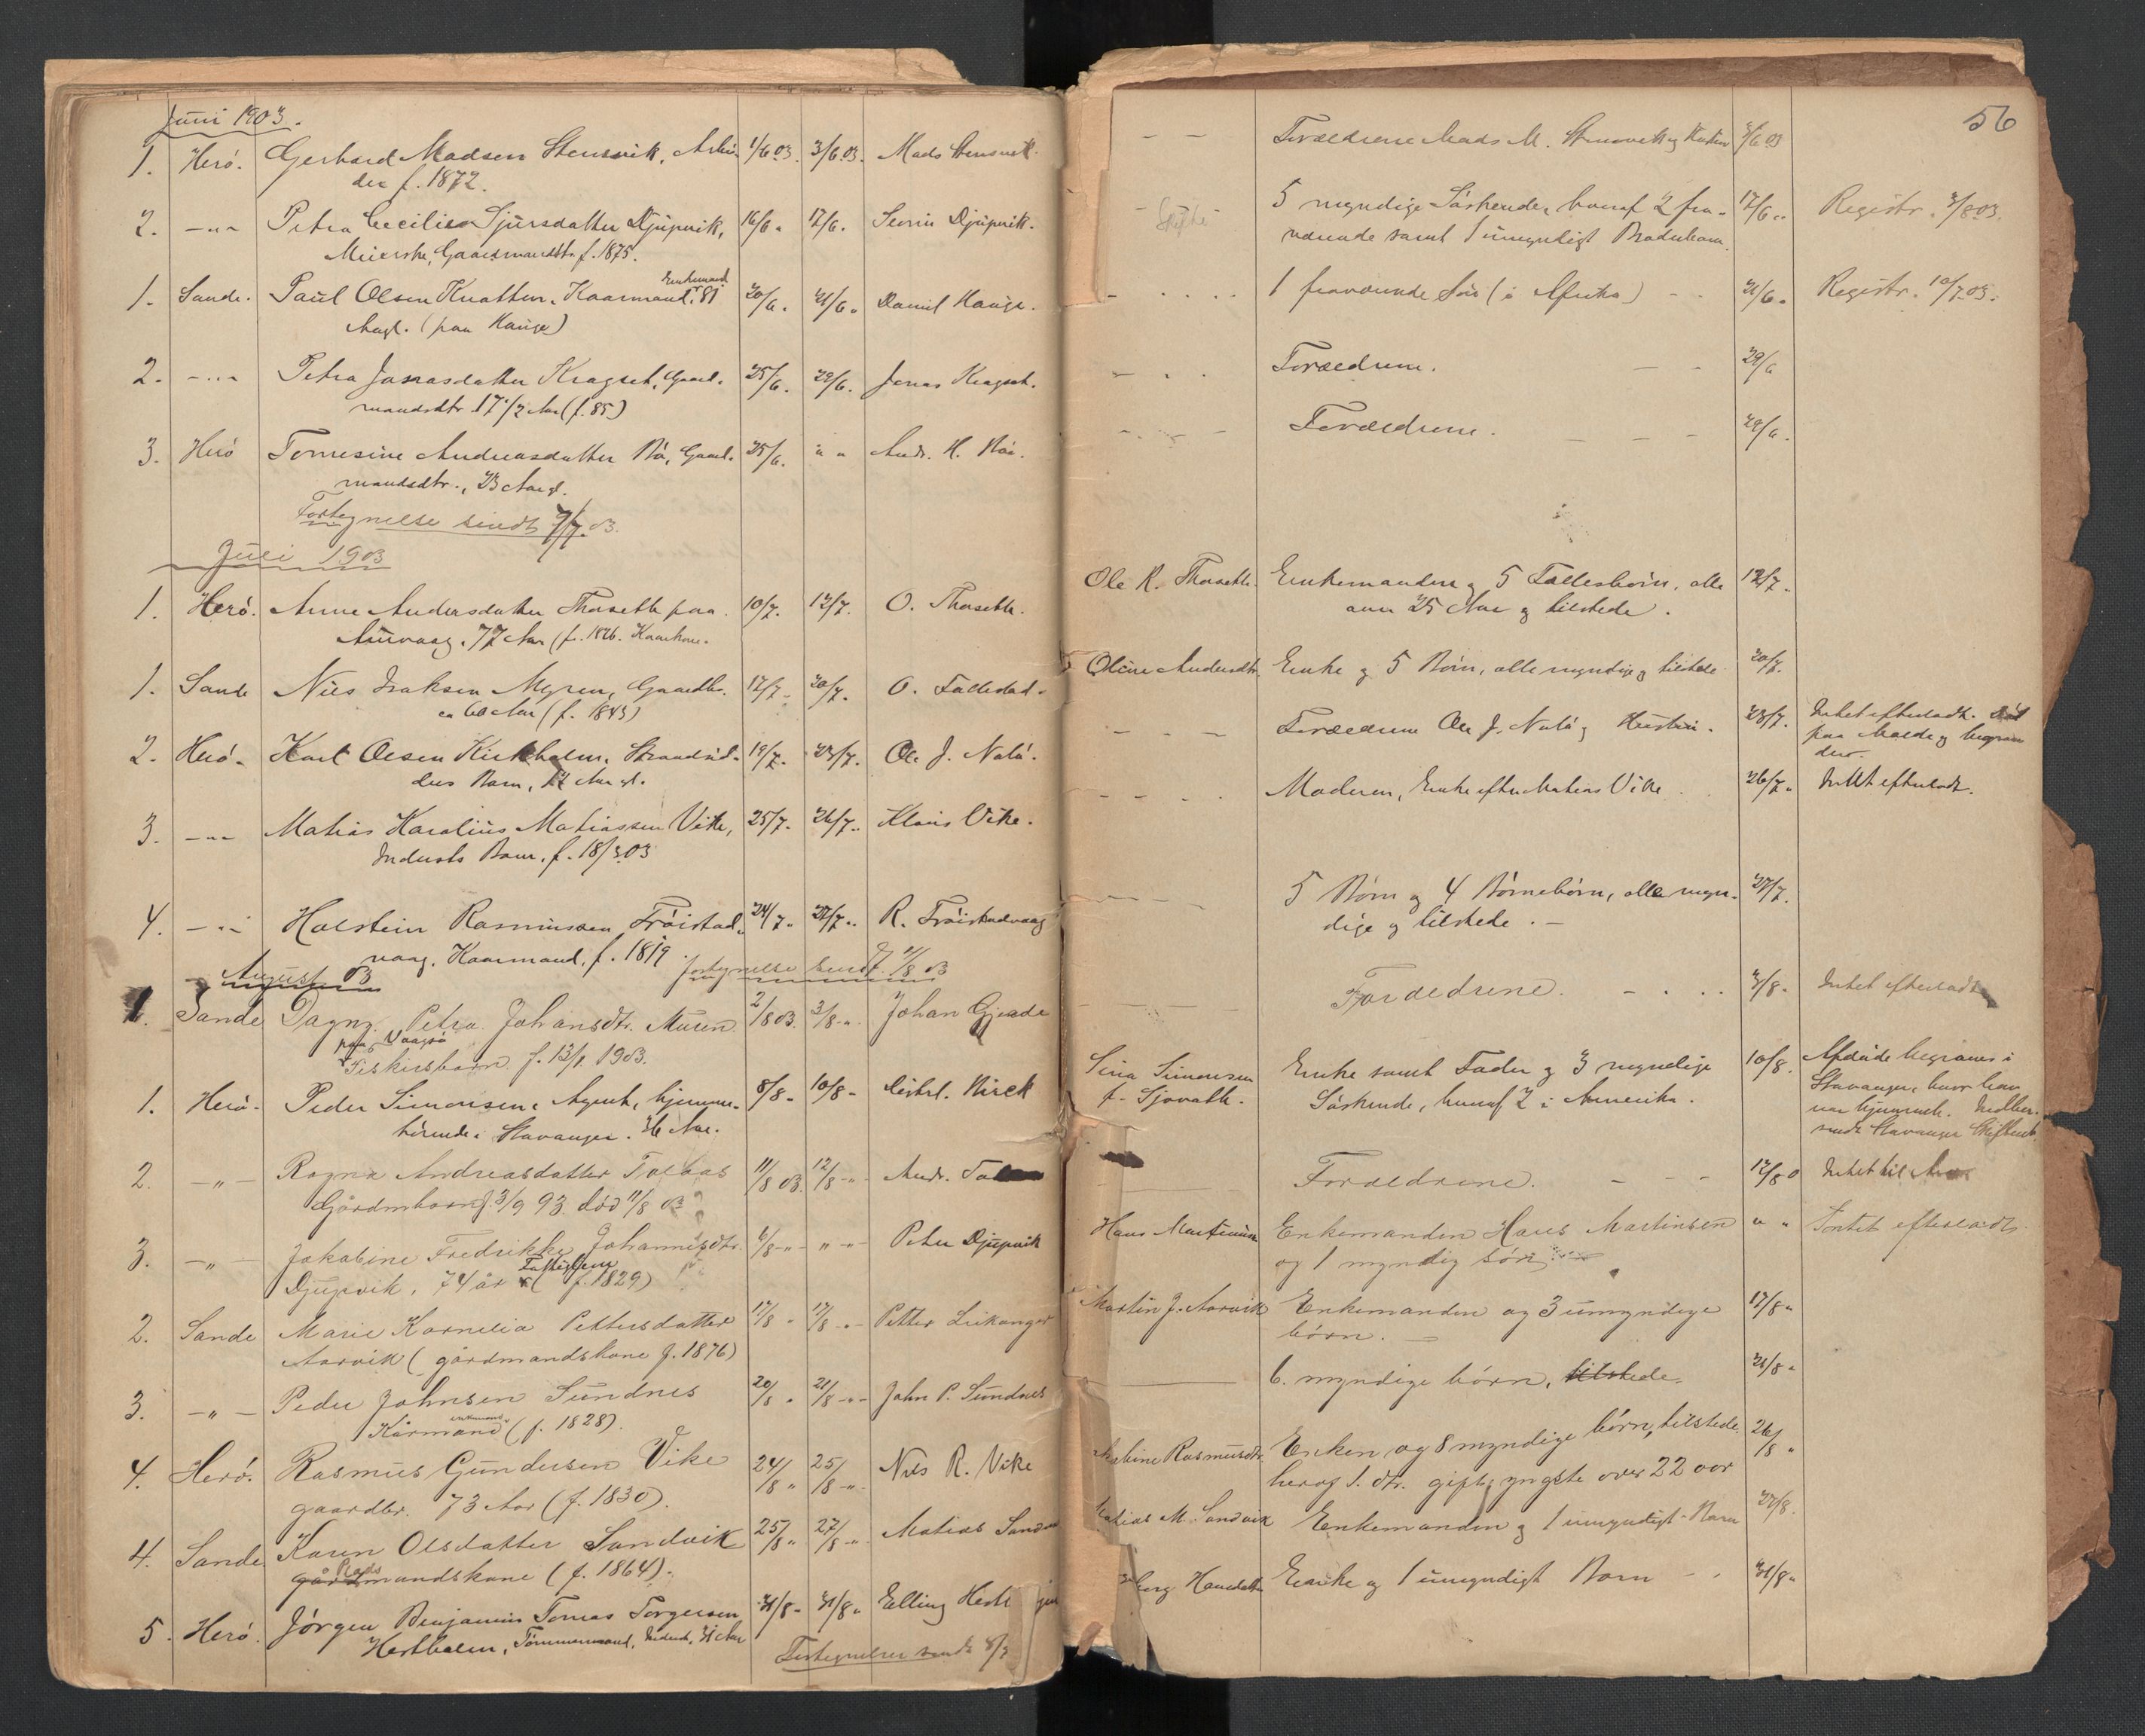 56
Juni 1903.
1. Herö. Gerhard Madsen Stensvik, Arbei- 1/6 03. 3/6 03. Mads Stensvik. – – Forældrene Mads M. Stensvik og 3/6 03
der f. 1872.
2. –„– Petra Cecilie Sjursdatter Djupvik, 16/6 „ 17/6. Severin Djupvik. – Skifte – 5 myndige Söskende, hvoraf 2 fra- 17/6 „ Registr. 3/8 03.
Meierske, Gaardmandsdtr. f. 1875. værende samt 1 umyndigt Broderbarn.
1. Sande. Paul Olsen Knatten, Kaarmand, Enkemand, 81 20/6. 21/6 „ Daniel Hauge. – 1 fraværende Sön (i Afrika) – 21/6 „ Registr. 10/7 03.
Aar gl. (paa Hauge)
2. –„– Petra Jonasdatter Kragset, Gaard- 25/6. 29/6. Jonas Kragset. – Forældrene. – – 29/6
mandsdtr. 17 1/2 Aar (f. 85)
3. Herö Tomesine Andreasdatter Bö, Gaard- 25/6. „ „ Andr. H. Bö. – Forældrene. – – – 29/6.
mandsdtr., 23 Aar gl.
Fortegnelse sendt 7/7. 03.
Juli 1903
1. Herö. Anne Andersdatter Thorseth paa 10/7. 12/7. O. Thorseth. Ole R. Thorseth. Enkemanden og 5 Fællesbörn, alle 12/7.
Aurvaag. 77 Aar (f. 1826. Kaarkone. over 25 Aar og tilstede.
1. Sande Nils Isaksen Myren, Gaardbr. 17/7. 20/7. O. Fallestad. Oline Andersdtr. Enke og 5 Börn, alle myndige og tilstede 20/7.
ca 60 Aar (f. 1843)
2. Herö. Karl Olsen Kirkholm, Strandsid- 19/7. 23/7. Ole J. Nalö. – – – Forældrene Ole J. Nalö og 23/7. Intet efterladt. Död
ders Barn, Aar gl. paa Molde og begraven
der.
3. –„– Matias Karolius Matiassen Vike, 25/7. 26/7. Klaus Vike. – – – Moderen, Enke efter Matias Vike 26/7. Intet efterladt.
Inderst Barn. f. 18/3 03
4. –„– Holstein Rasmussen Fröistad- 24/7. 27/7. R. Fröistadvaag – – – 5 Börn og 4 Börnebörn, alle myn- 27/7.
vaag. Kaarmand, f. 1819 dige og tilstede. –
fortegnelse sendt 4/8 03
August 03
1. Sande Dagny Petra Johansdtr. Muren 2/8 03. 3/8 „ Johan Gjerde – Forældrene. – – 3/8. Intet efterladt
paa Vaagsö
Fiskersbarn f. 13/1 1903.
1. Herö. Peder Simonsen, Agent, hjemme- 8/8 – 10/8 – Distrl. Nirck Sina Simonsen Enke samt Fader og 3 myndige 10/8. Afdöde begraves i
hörende i Stavanger. 36 Aar. f. Sjovath. Söskende, hvoraf 2 i Amerika. Stavanger, hvor han
var hjemmeh. Indber.
sendt Stavanger Skifteret.
2. –„– Ragna Andreasdatter Tolaas 11/8 03. 12/8 „ Andr. Forældrene. – – – 12/8 0 Intet til
Gårdmbarn f. 3/9 93 död 11/8 03
3. –„– Jakobine Fredrikke Johannesdtr. 6/8 „ „ Peter Djupvik Hans Martinsen Enkemanden Hans Martinsen „ „ Intet efterladt.
Djupvik, 74 år (f. 1829) og 1 myndig sön
2. Sande Marie Kornelia Pettersdatter 17/8 „ 17/8 „ Petter Leikanger Martin J. Aarvik Enkemanden og 3 umyndige 17/8 „
Aarvik (gårdmandskone f. 1876) börn. –
3. –„– Peder Johnsen Sundnes 20/8 „ 21/8 „ John P. Sundnes 6. myndige börn, tilstede. 21/8 „
Kårmand enkemand (f. 1828).
4. Herö. Rasmus Gundersen Vike 24/8 „ 25/8 „ Nils R. Vike Rasmusdtr. Enken og 8 myndige börn, tilstede 26/8 „
gaardbr. 73 Aar (f. 1830). herav 1. dtr. gift, yngste over 22 aar
4. Sande Karen Olsdatter Sandvik 25/8 „ 27/8 „ Matias Matias M. Sandvik Enkemanden og 1 umyndigt Barn 27/8.
Plads gårdmandskone (f. 1864).
5. Herö. Jörgen Benjamin Tomas Torgersen 31/8 – 31/8 „ Elling Enke og 1 umyndigt Barn – 31/8 „
Hestholm, Tömmermand, Inderst, 31 Aar
Fortegnelser sendt